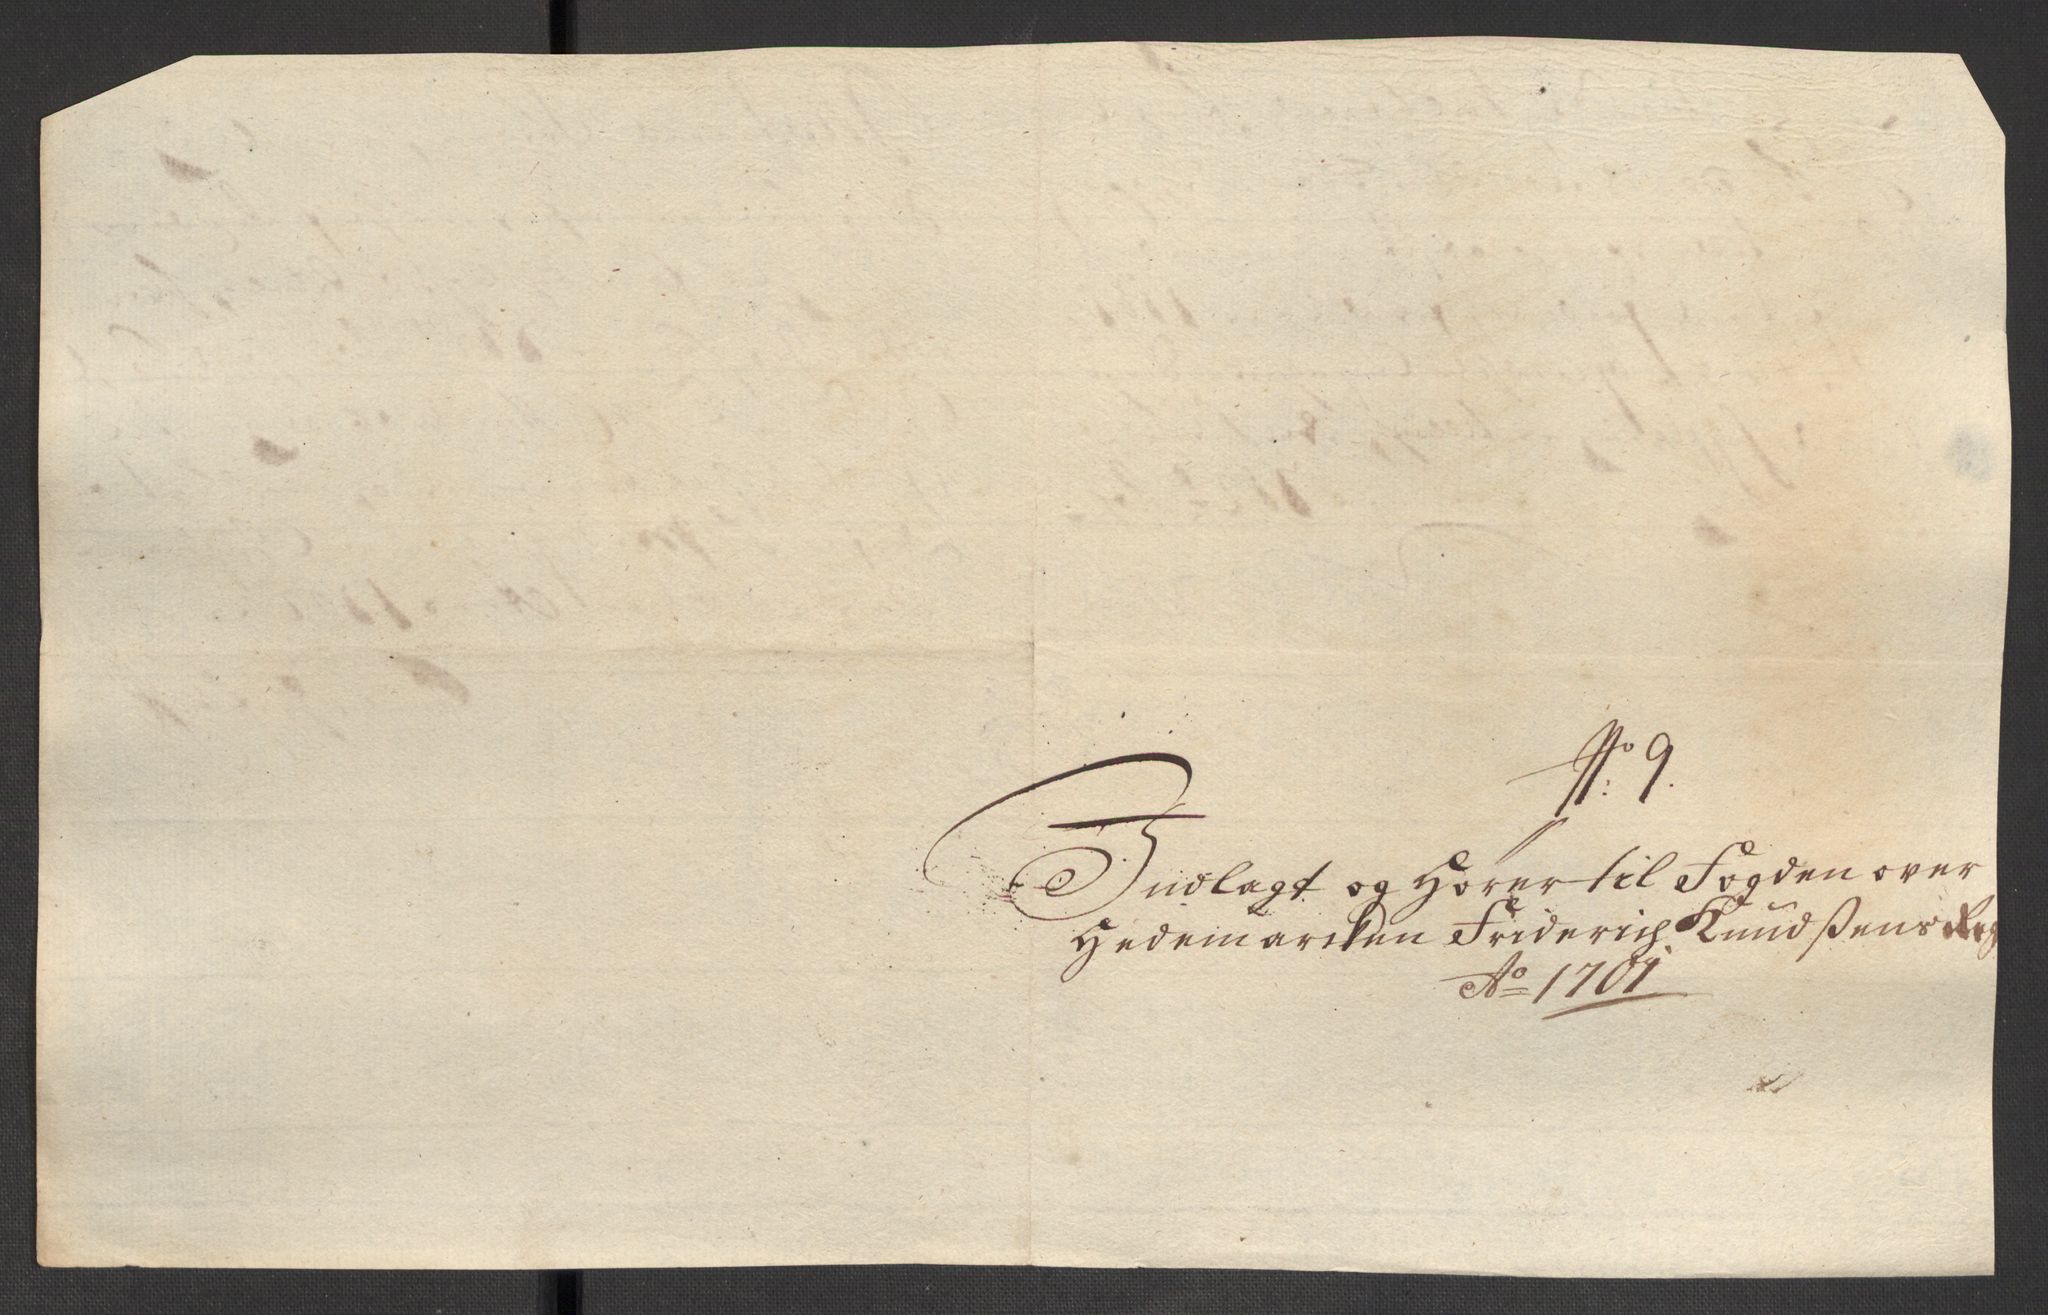 No: 9.
Indlagt og Hører til Fogden over
Hedemarcken Friderich Knudßens Reg
Ao 1701